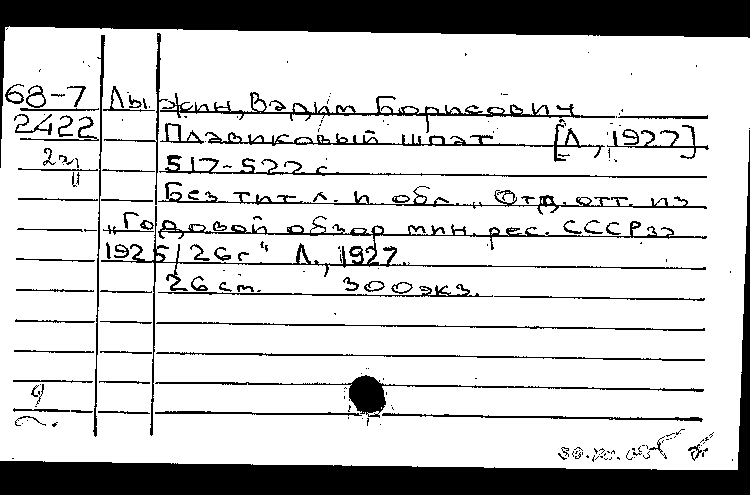 68-7 Лыжин, Вадим Борисович
2422 Плавиковый шпат [Л., 1927]
2эк 517-522 с.
Без тит. л. и обл. „ Отд. отт. из
„Годовой обзор мин. рес. СССР за
1925/26 г." Л., 1927.
26 см. 300 экз.